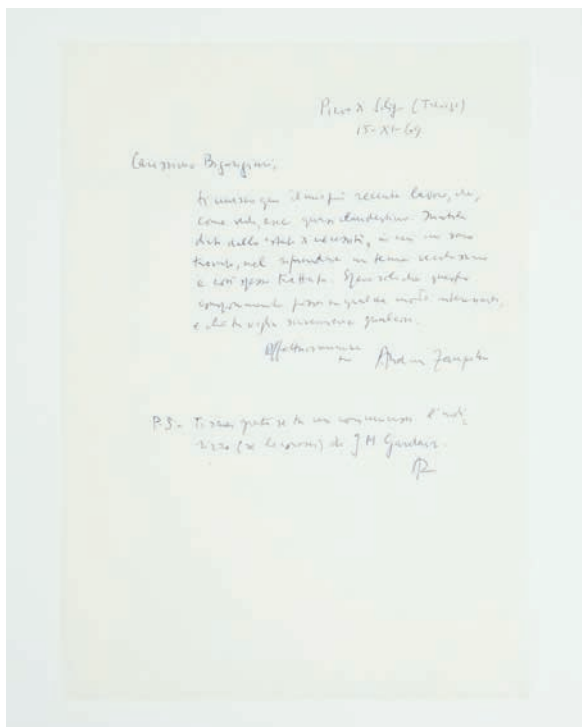 Pieve di Soligo (Treviso)
15-XI-69
Carissimo Bigongiari,
ti mando qui il mio più recente lavoro, che,
come vedi, esce quasi clandestino. Inutile
dirti dello stato di necessità, in cui mi sono
trovato, nel riprendere un tema
e così spesso trattato. Spero solo che questo
componimento possa in qualche modo interessarti,
e che tu voglia scrivermene qualcosa.
Affettuosamente
tuo Andrea Zanzotto
P.S. - Ti sarei grato se tu mi comunicassi l'indi,
rizzo (se lo conosci) di J M Gardair.
AZ